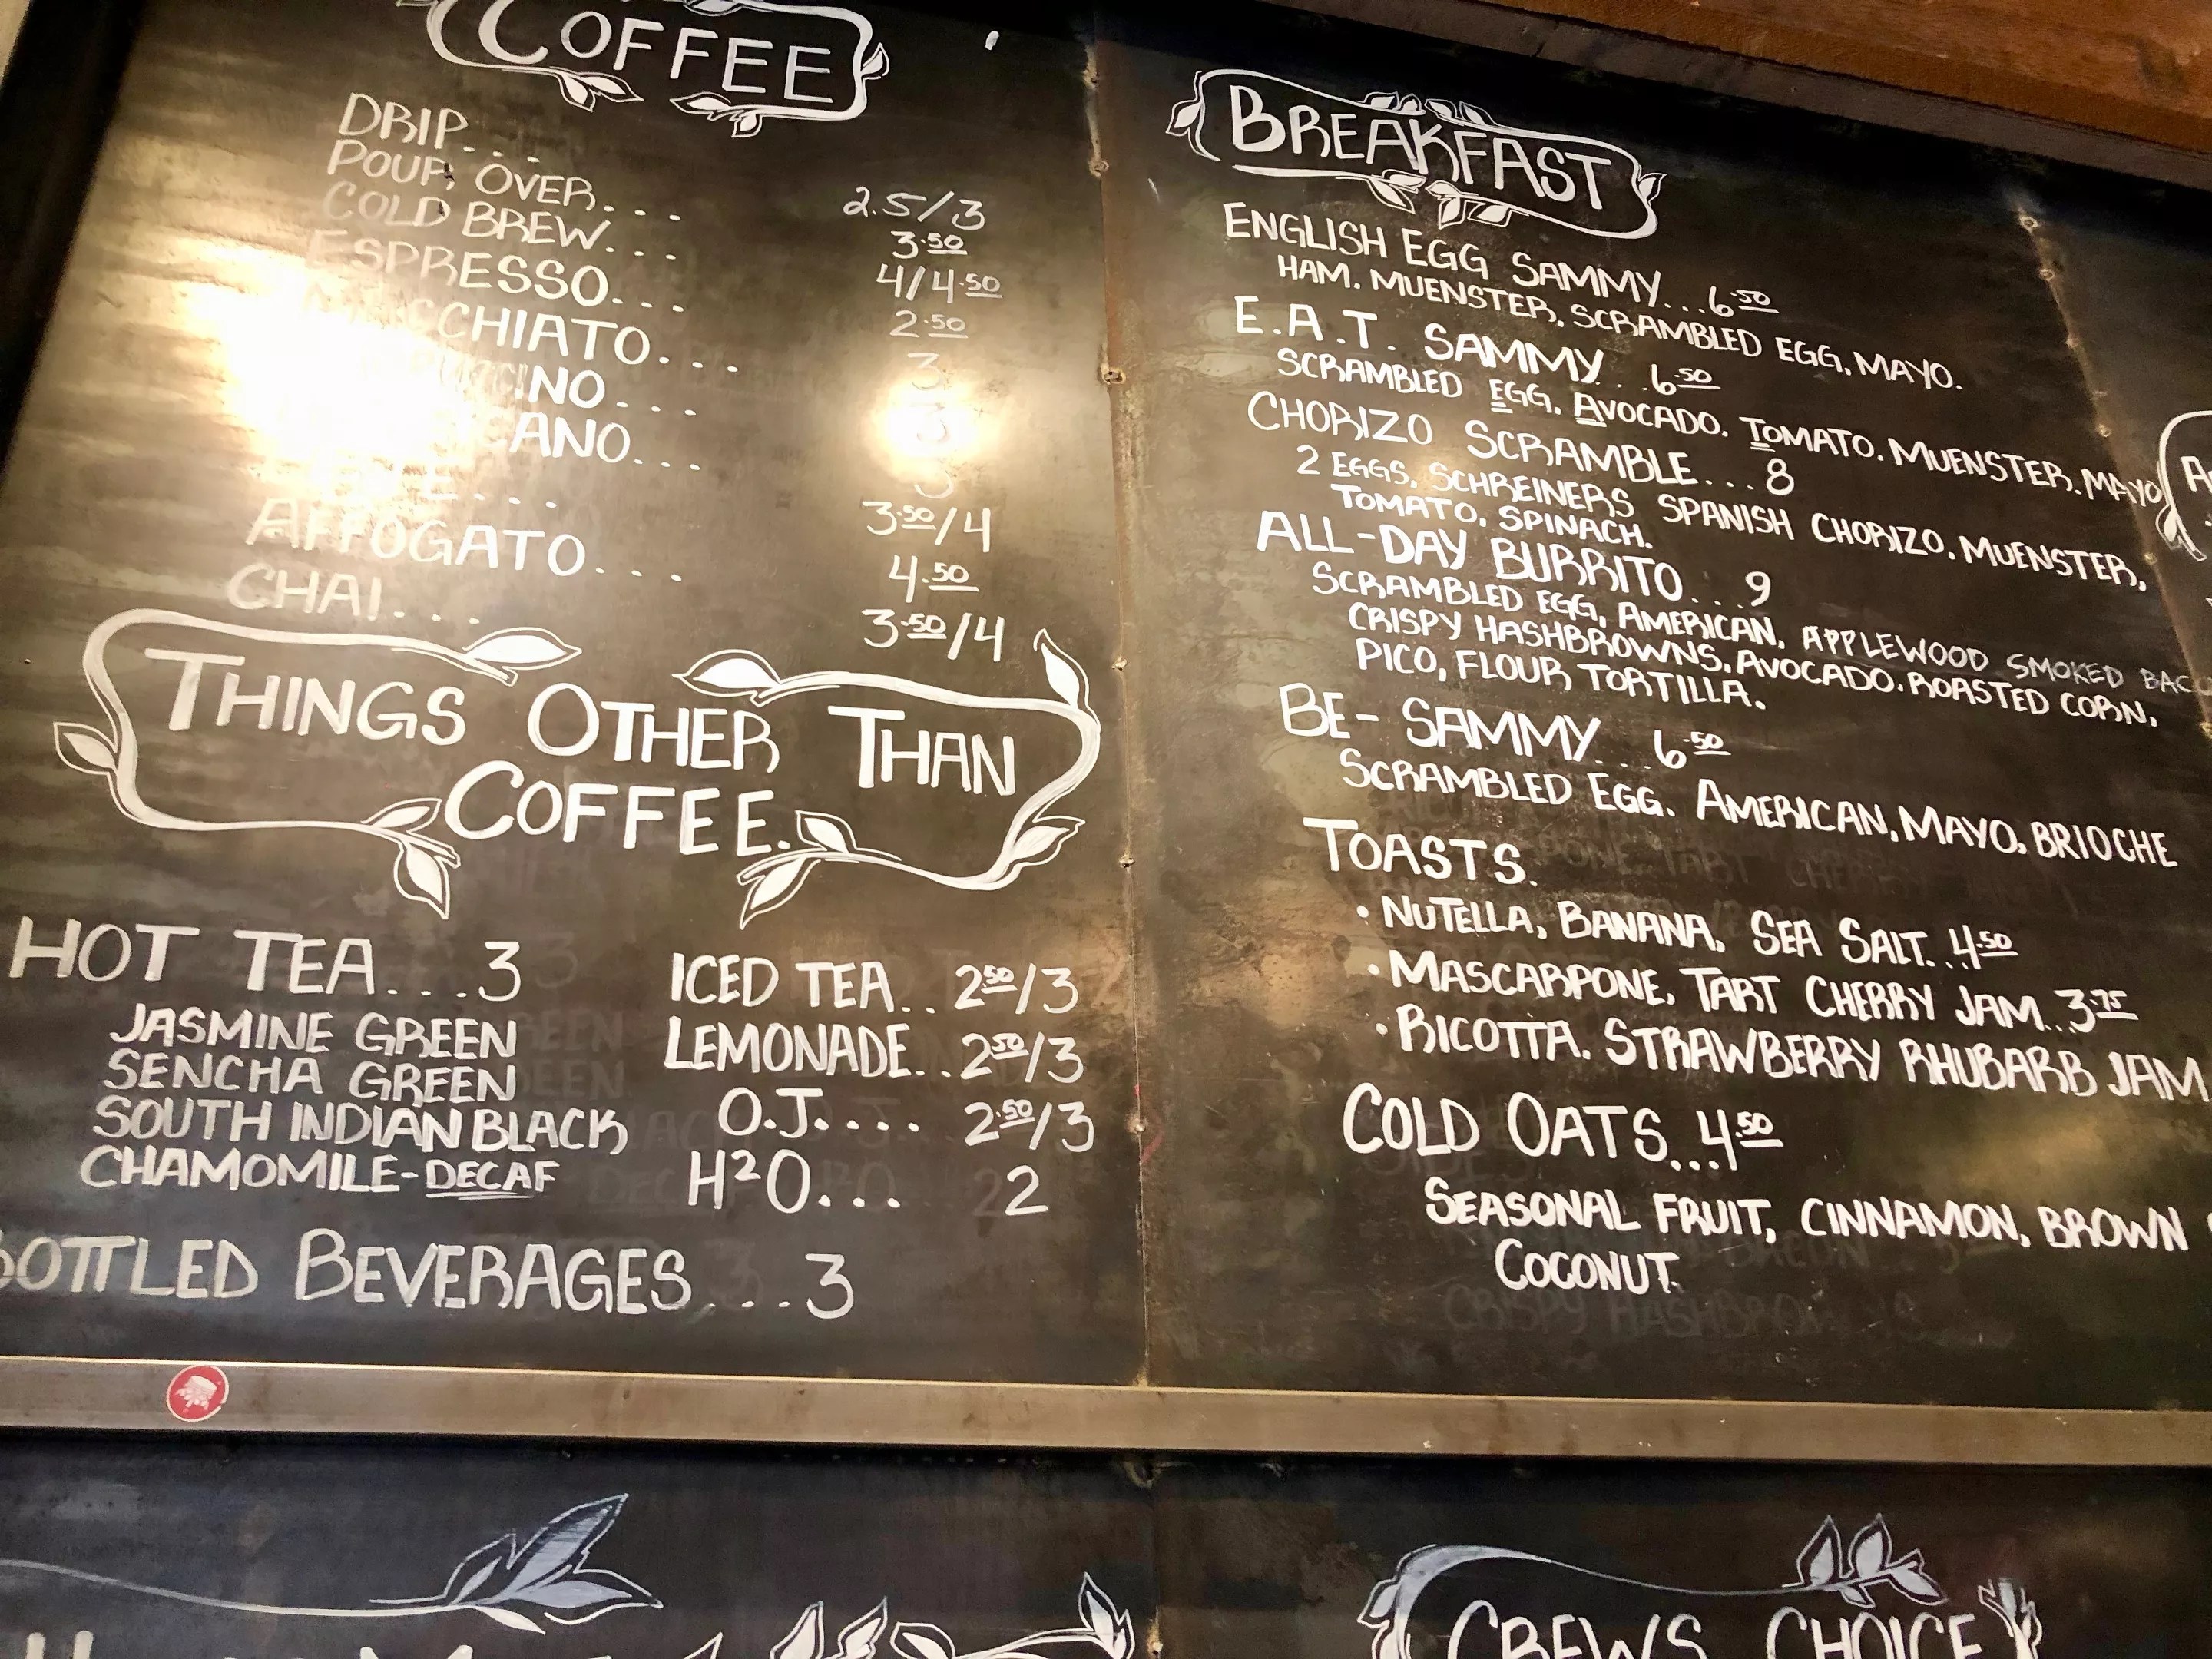 COFFEE
DRIP... 2.5/3
POUR OVER... 3.50
COLD BREW... 4/4.50
ESPRESSO... 2.50
MACCHIATO... 3
3
3
3.50/4
AFFOGATO... 4.50
CHAI... 3.50/4
THINGS OTHER THAN
COFFEE.
HOT TEA...3
JASMINE GREEN
SENCHA GREEN
SOUTH INDIAN BLACK
CHAMOMILE-DECAF
ICED TEA.. 2.50/3
LEMONADE.. 2.50/3
O.J.... 2.50/3
H2O... 2
BOTTLED BEVERAGES...3
BREAKFAST
ENGLISH EGG SAMMY...6.50
HAM. MUENSTER. SCRAMBLED EGG. MAYO.
E.A.T. SAMMY...6.50
SCRAMBLED EGG. AVOCADO. TOMATO. MUENSTER. MAYO
CHORIZO SCRAMBLE...8
2 EGGS. SCHREINERS SPANISH CHORIZO. MUENSTER,
TOMATO. SPINACH.
ALL-DAY BURRITO...9
SCRAMBLED EGG, AMERICAN, APPLEWOOD SMOKED BAC
CRISPY HASHBROWNS. AVOCADO. ROASTED CORN,
PICO, FLOUR TORTILLA.
BE- SAMMY...6.50
SCRAMBLED EGG. AMERICAN, MAYO, BRIOCHE
TOASTS.
• NUTELLA, BANANA, SEA SALT...4.50
• MASCARPONE, TART CHERRY JAM...3.75
• RICOTTA. STRAWBERRY RHUBARB JAM
COLD OATS...4.50
SEASONAL FRUIT, CINNAMON, BROWN
COCONUT.
CREWS CHOICE